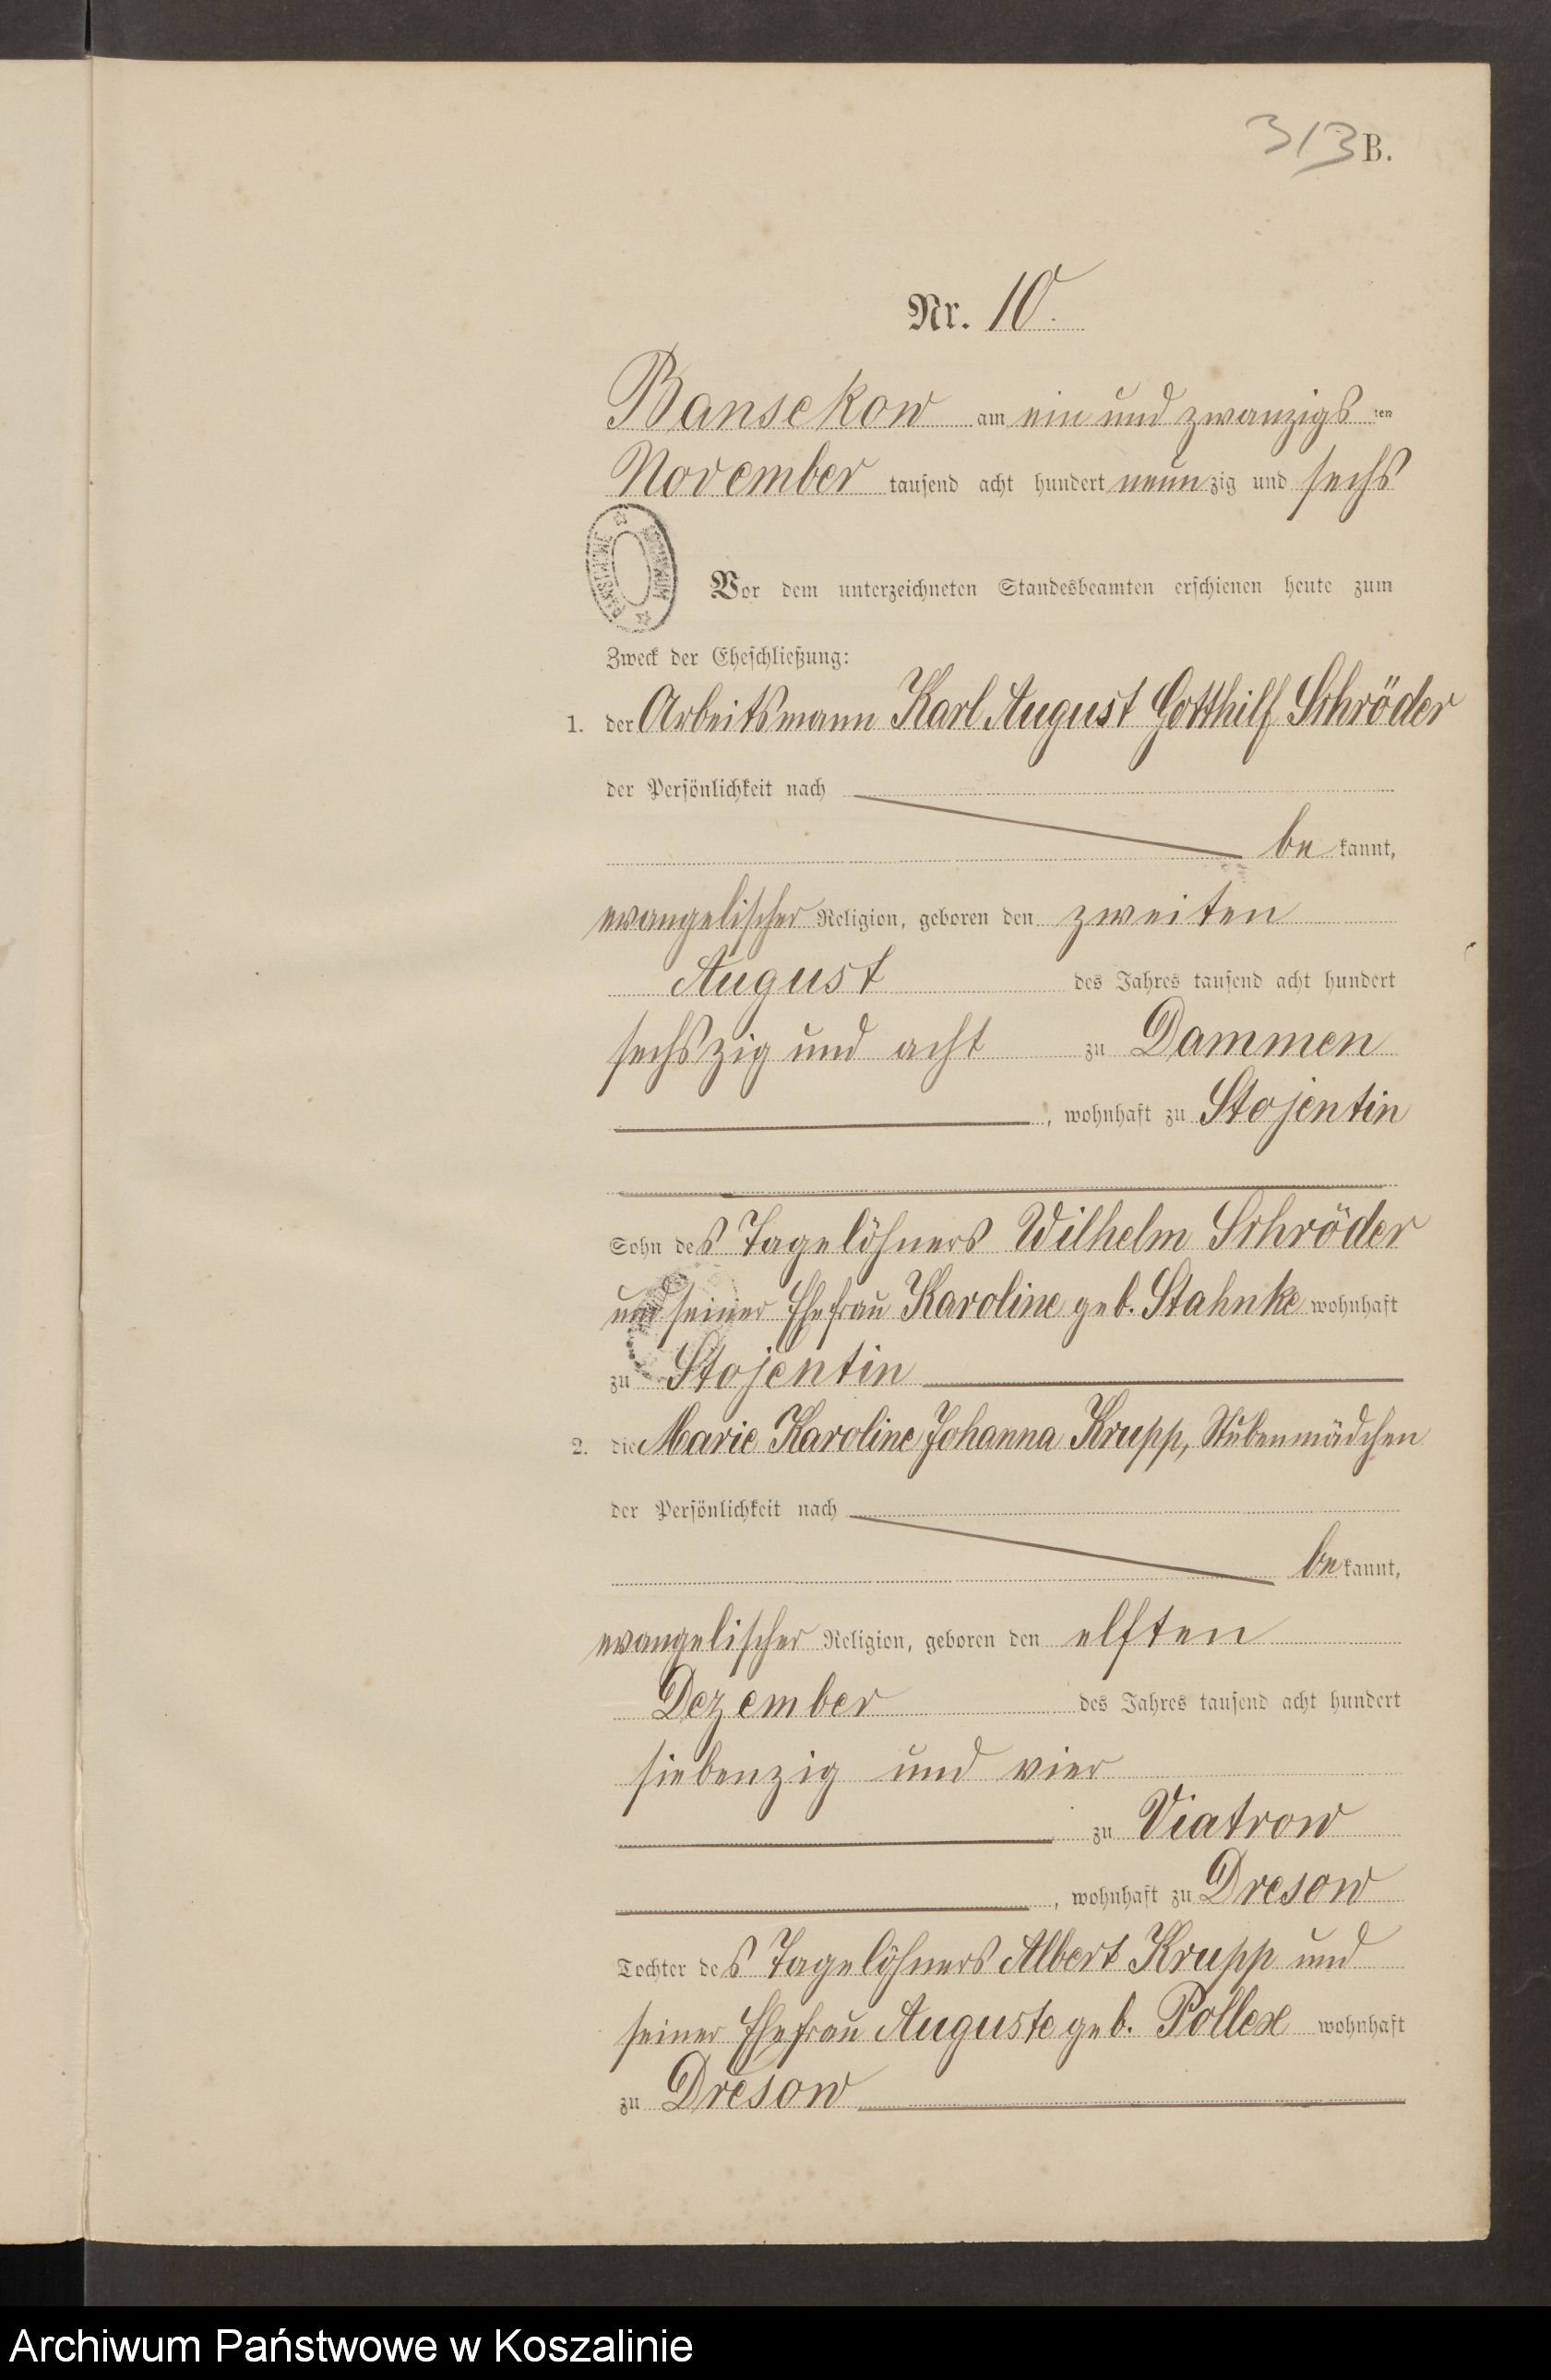 313 B.
Nr. 10.
Bansekow am ein und zwanzigs ten
November tausend acht hundert neunzig und sechs
Vor dem unterzeichneten Standesbeamten erschienen heute zum
Zweck der Eheschließung:
1. der Arbeitsmann Karl August Gotthilf Schröder
der Persönlichkeit nach
be kannt,
evangelischer Religion, geboren den zweiten
August des Jahres tausend acht hundert
sechszig und acht zu Dammen
, wohnhaft zu Stojentin
Sohn des Tagelöhners Wilhelm Schröder
und seiner Ehefrau Karoline geb. Stahnke wohnhaft
zu Stojentin
2. die Marie Karoline Johanna Krupp, Stubenmädchen
der Persönlichkeit nach
be kannt,
evangelischer Religion, geboren den elften
Dezember des Jahres tausend acht hundert
siebenzig und vier
zu Viatrow
, wohnhaft zu Dresow
Tochter des Tagelöhners Albert Krupp und
seiner Ehefrau Auguste geb. Pollex wohnhaft
zu Dresow
Archiwum Państwowe w Koszalinie